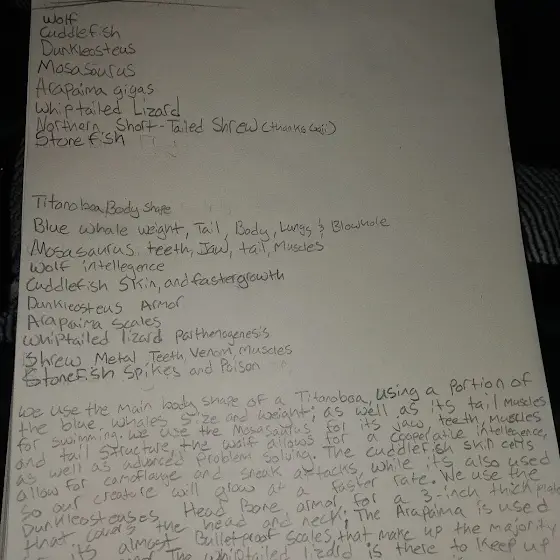 Wolf
Cuddlefish
Dunkleosteus
Mosasaurus
Arapaima gigas
Whiptailed Lizard
Northern Short-Tailed Shrew (thanks
Stonefish
Titanoboa Body Shape
Blue whale weight, Tail, Body, Lungs & Blowhole
Mosasaurus teeth, Jaw, tail, Muscles
Wolf intellegence
Cuddlefish Skin, and faster growth
Dunkleosteus Armor
Arapaima Scales
Whiptailed lizard Parthenogenesis
Shrew Metal Teeth, Venom, Muscles
Stonefish Spikes and Poison
We use the main body shape of a Titanoboa, using a portion of
the blue whales size and weight; as well as its tail muscles
for swimming. We use the Mosasaurus for its jaw, teeth, Muscles
and tail structure. the wolf allows for a cooperative intellegence,
as well as advanced problem solving. The cuddlefish skin cells
allow for camoflauge and sneak attacks, while its also used
so our creature will grow at a faster rate. We use the
Dunkleosteuses Head Bone armor for a 3-inch thick plate
that covers the head and neck; The Arapaima is used
for its almost Bulletproof scales, that make up the majority
The whiptailed lizard is there to keep up